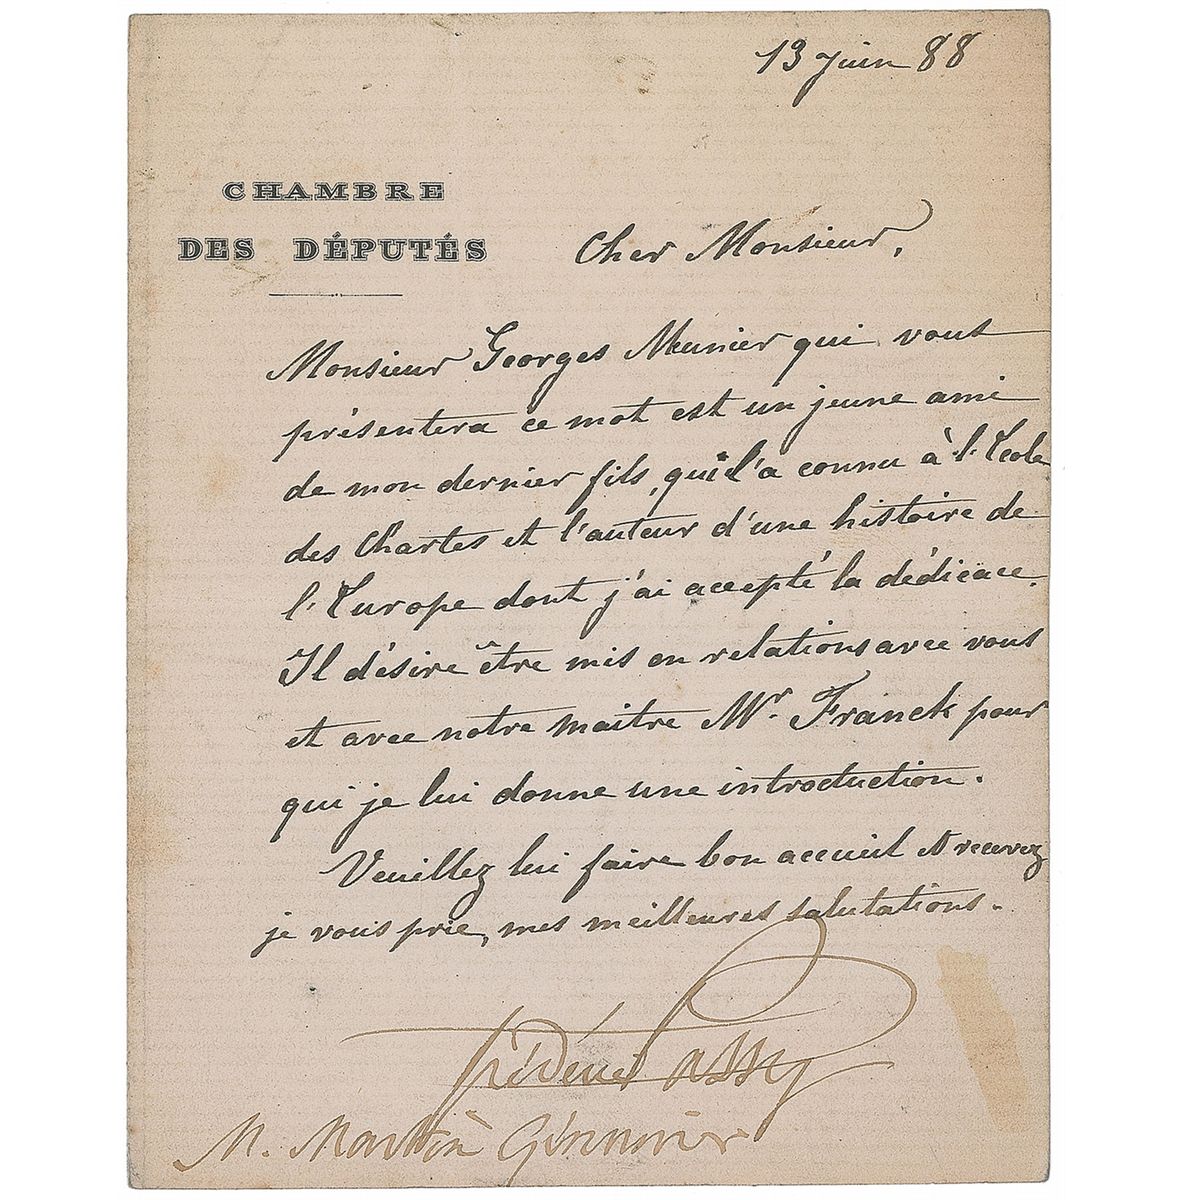 13 juin 88
CHAMBRE
DES DÉPUTÉS
Cher Monsieur,
Monsieur Georges Meunier qui vous
présentera ce mot est un jeune ami
de mon dernier fils, qui l'a connu à l'Ecole
des Chartes et l'auteur d'une histoire de
l'Europe dont j'ai accepté la dédicace.
Il désire être mis en relations avec vous
et avec notre maitre Mr. Franck pour
qui je lui donne une introduction.
Veuillez lui faire bon accueil et recevez
je vous prie, mes meilleures salutations.
Frédéric Passy
M. Martin